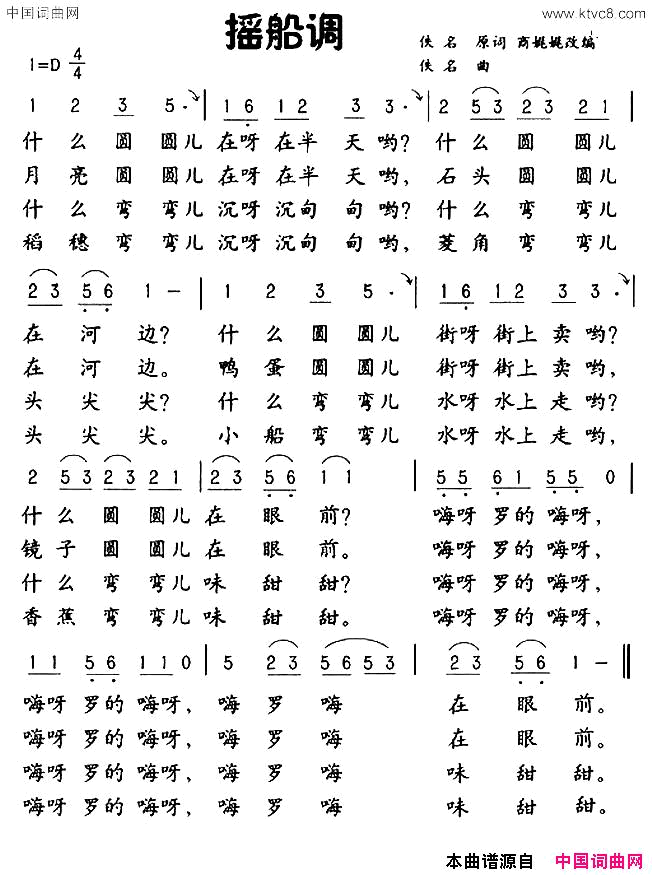 中国词曲网 www.ktvc8.com
摇船调
佚名 原词 商姚姚改编
1=D 4/4 佚名 曲
1 2 3 5· | 1 6 1 2 3 3· | 2 5 3 2 3 2 1
什么圆圆儿在呀在半天哟?什么圆圆儿
月亮圆圆儿在呀在半天哟,石头圆圆儿
什么弯弯儿沉呀沉甸甸哟?什么弯弯儿
稻穗弯弯儿沉呀沉甸甸哟,菱角弯弯儿
2 3 5 6 1 – | 1 2 3 5· | 1 6 1 2 3 3· |
在河边?什么圆圆儿街呀街上卖哟?
在河边。鸭蛋圆圆儿街呀街上卖哟,
头尖尖?什么弯弯儿水呀水上走哟?
头尖尖。小船弯弯儿水呀水上走哟,
2 5 3 2 3 2 1 | 2 3 5 6 1 1 | 5 5 6 1 5 5 0 |
什么圆圆儿在眼前?嗨呀罗的嗨呀,
镜子圆圆儿在眼前。嗨呀罗的嗨呀,
什么弯弯儿味甜甜?嗨呀罗的嗨呀,
香蕉弯弯儿味甜甜。嗨呀罗的嗨呀,
1 1 5 6 1 1 0 | 5 2 3 5 6 5 3 | 2 3 5 6 1 – ‖
嗨呀罗的嗨呀,嗨罗嗨在眼前。
嗨呀罗的嗨呀,嗨罗嗨在眼前。
嗨呀罗的嗨呀,嗨罗嗨味甜甜。
嗨呀罗的嗨呀,嗨罗嗨味甜甜。
本曲谱源自 中国词曲网